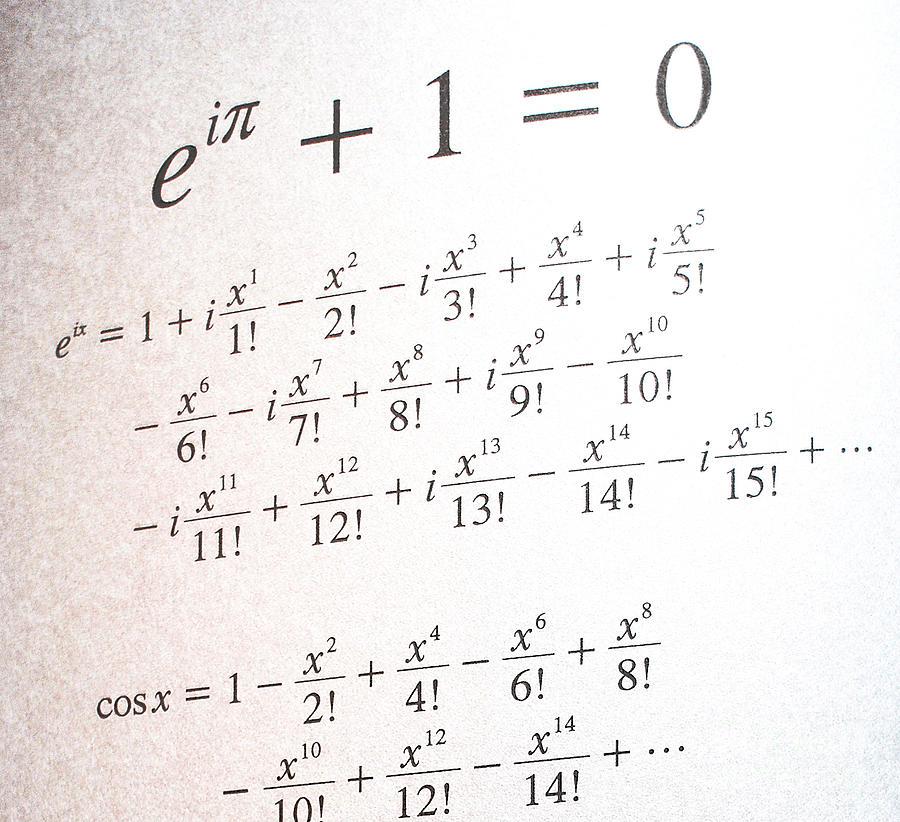 e^{iπ} + 1 = 0
e^{ix} = 1 + i x^1/1! − x^2/2! − i x^3/3! + x^4/4! + i x^5/5!
− x^6/6! − i x^7/7! + x^8/8! + i x^9/9! − x^10/10!
− i x^11/11! + x^12/12! + i x^13/13! − x^14/14! − i x^15/15! + ...
cos x = 1 − x^2/2! + x^4/4! − x^6/6! + x^8/8!
− x^10/10! + x^12/12! − x^14/14! + ...